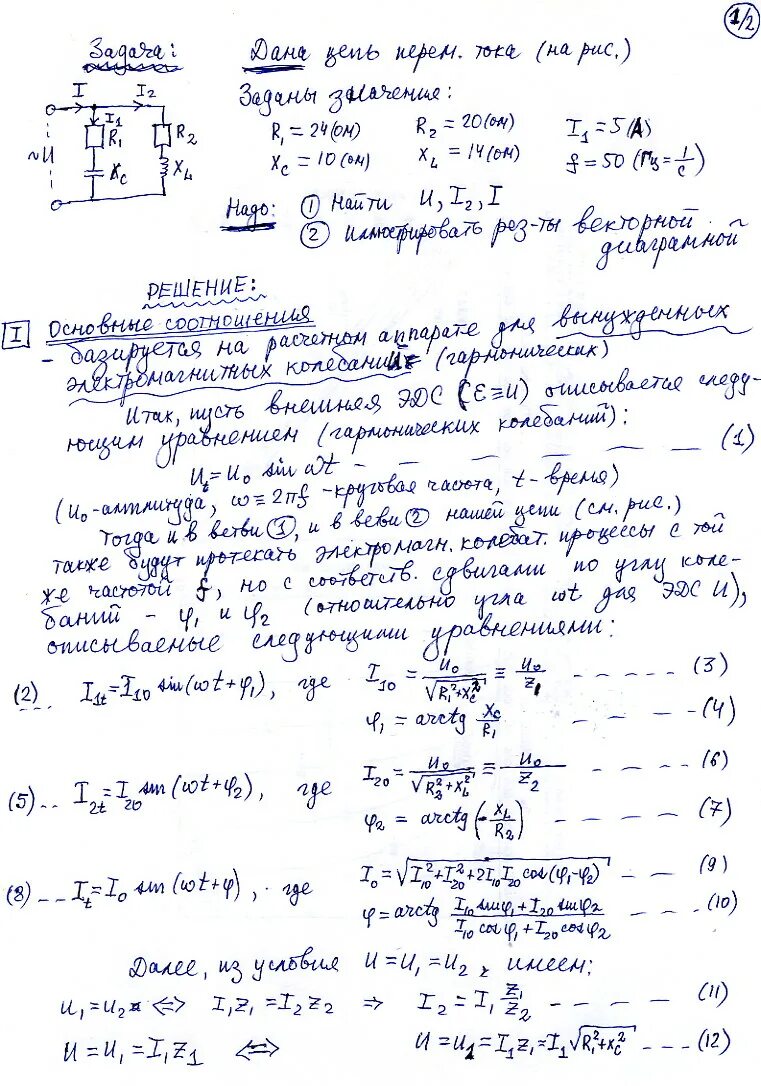 1/2
Задача: Дана цепь перем. тока (на рис.)
Заданы значения:
I I2
I1
R1 R2
~U
Xc XL
R1 = 24 (ом) R2 = 20 (ом) I1 = 5 (А)
Xc = 10 (ом) XL = 14 (ом) f = 50 (Гц = 1/с)
Надо: ① Найти U, I2, I
② Иллюстрировать рез-ты векторной
диаграмной
РЕШЕНИЕ:
I Основные соотношения
- базируется на расчетном аппарате для вынужденных
электромагнитных колебаний (гармонических)
Итак, пусть внешняя ЭДС (Ɛ≡U) описывается следу-
ющим уравнением (гармонических колебаний):
Ut = U0 sin ωt - - - - - (1)
(U0 - амплитуда, ω ≡ 2πf - круговая частота, t - время)
Тогда и в ветви ①, и в ветви ② нашей цепи (см. рис.)
также будут протекать электромагн. колебат. процессы с той
же частотой f, но с соответств. сдвигами по углу коле-
баний - φ1 и φ2 (относительно угла ωt для ЭДС U),
описываемые следующими уравнениями:
(2) ... I1t = I10 sin(ωt+φ1), где I10 = U0/√(R1²+Xc²) ≡ U0/Z1 - - - - - (3)
φ1 = arctg Xc/R1 - - - - (4)
(5) .. I2t = I20 sin(ωt+φ2), где I20 = U0/√(R2²+XL²) ≡ U0/Z2 - - - - (6)
φ2 = arctg(-XL/R2) - - - - (7)
(8) -- It = I0 sin(ωt+φ), где I0 = √(I10²+I20²+2I10I20 cos(φ1-φ2)) - - - (9)
φ = arctg (I10 sinφ1 + I20 sinφ2)/(I10 cosφ1 + I20 cosφ2) - - - (10)
Далее, из условия U = U1 = U2, имеем:
U1 = U2 ⇔ I1Z1 = I2Z2 ⇒ I2 = I1 Z1/Z2 - - - - - (11)
U = U1 = I1Z1 ⇔ U = U1 = I1Z1 = I1√(R1²+Xc²) - - - (12)